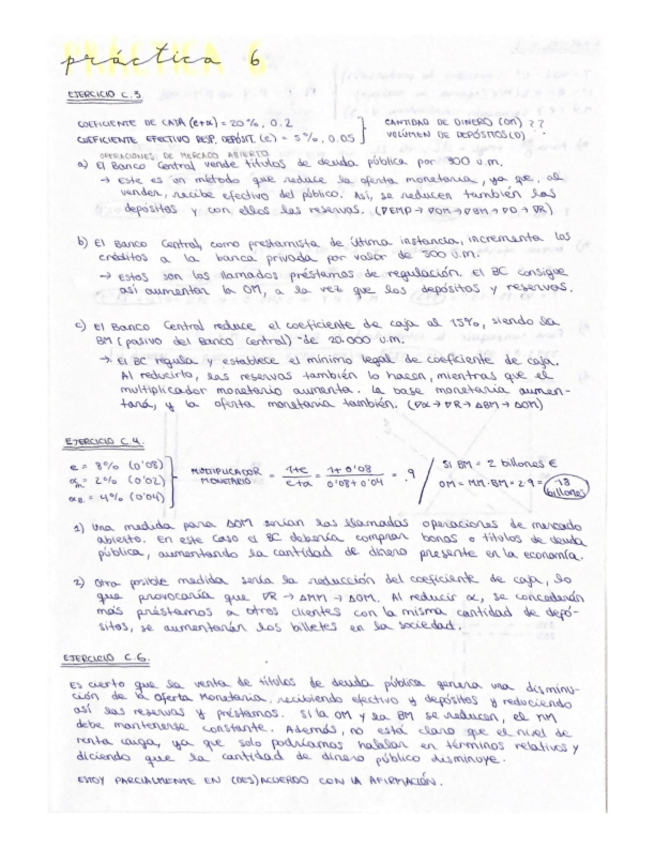 práctica 6
EJERCICIO C.3.
COEFICIENTE DE CAJA (e+α) = 20%, 0.2
COEFICIENTE EFECTIVO RESP. DEPÓSIT. (e) = 5%, 0.05
CANTIDAD DE DINERO (OM) ??
VOLUMEN DE DEPÓSITOS (D)
OPERACIONES DE MERCADO ABIERTO
a) El Banco Central vende títulos de deuda pública por 300 u.m.
→ Este es un método que reduce la oferta monetaria, ya que, al
venden, recibe efectivo del público. Así, se reducen también los
depósitos y con ellos las reservas. (∇EMP→∇OM→∇BM→∇D→∇R)
b) El Banco Central, como prestamista de última instancia, incrementa los
créditos a la banca privada por valor de 300 u.m.
→ Estos son los llamados préstamos de regulación. El BC consigue
así aumentar la OM, a la vez que los depósitos y reservas.
c) El Banco Central reduce el coeficiente de caja al 15%, siendo la
BM (pasivo del Banco Central) de 20.000 u.m.
→ El BC regula y establece el mínimo legal de coeficiente de caja.
Al reducirlo, las reservas también lo hacen, mientras que el
multiplicador monetario aumenta. La base monetaria aumen-
tará, y la oferta monetaria también. (∇α→∇R→ΔBM→ΔOM)
EJERCICIO C.4.
e = 8% (0'08)
= 2% (0'02)
= 4% (0'04)
MULTIPLICADOR MONETARIO = 1+e / e+α = 1+0'08 / 0'08+0'04 = 9
SI BM = 2 billones €
OM = MM·BM = 2·9 = 18 billones
1) Una medida para ΔOM serían las llamadas operaciones de mercado
abierto. En este caso el BC debería comprar bonos o títulos de deuda
pública, aumentando la cantidad de dinero presente en la economía.
2) Otra posible medida sería la reducción del coeficiente de caja, lo
que provocaría que ∇R→ΔMM→ΔOM. Al reducir α, se concederán
más préstamos a otros clientes con la misma cantidad de depó-
sitos, se aumentarán los billetes en la sociedad.
EJERCICIO C.6.
Es cierto que la venta de títulos de deuda pública genera una disminu-
ción de la Oferta Monetaria, recibiendo efectivo y depósitos y reduciendo
así las reservas y préstamos. Si la OM y la BM se reducen, el MM
debe mantenerse constante. Además, no está claro que el nivel de
renta caiga, ya que solo podríamos hablar en términos relativos y
diciendo que la cantidad de dinero público disminuye.
ESTOY PARCIALMENTE EN (DES)ACUERDO CON LA AFIRMACIÓN.